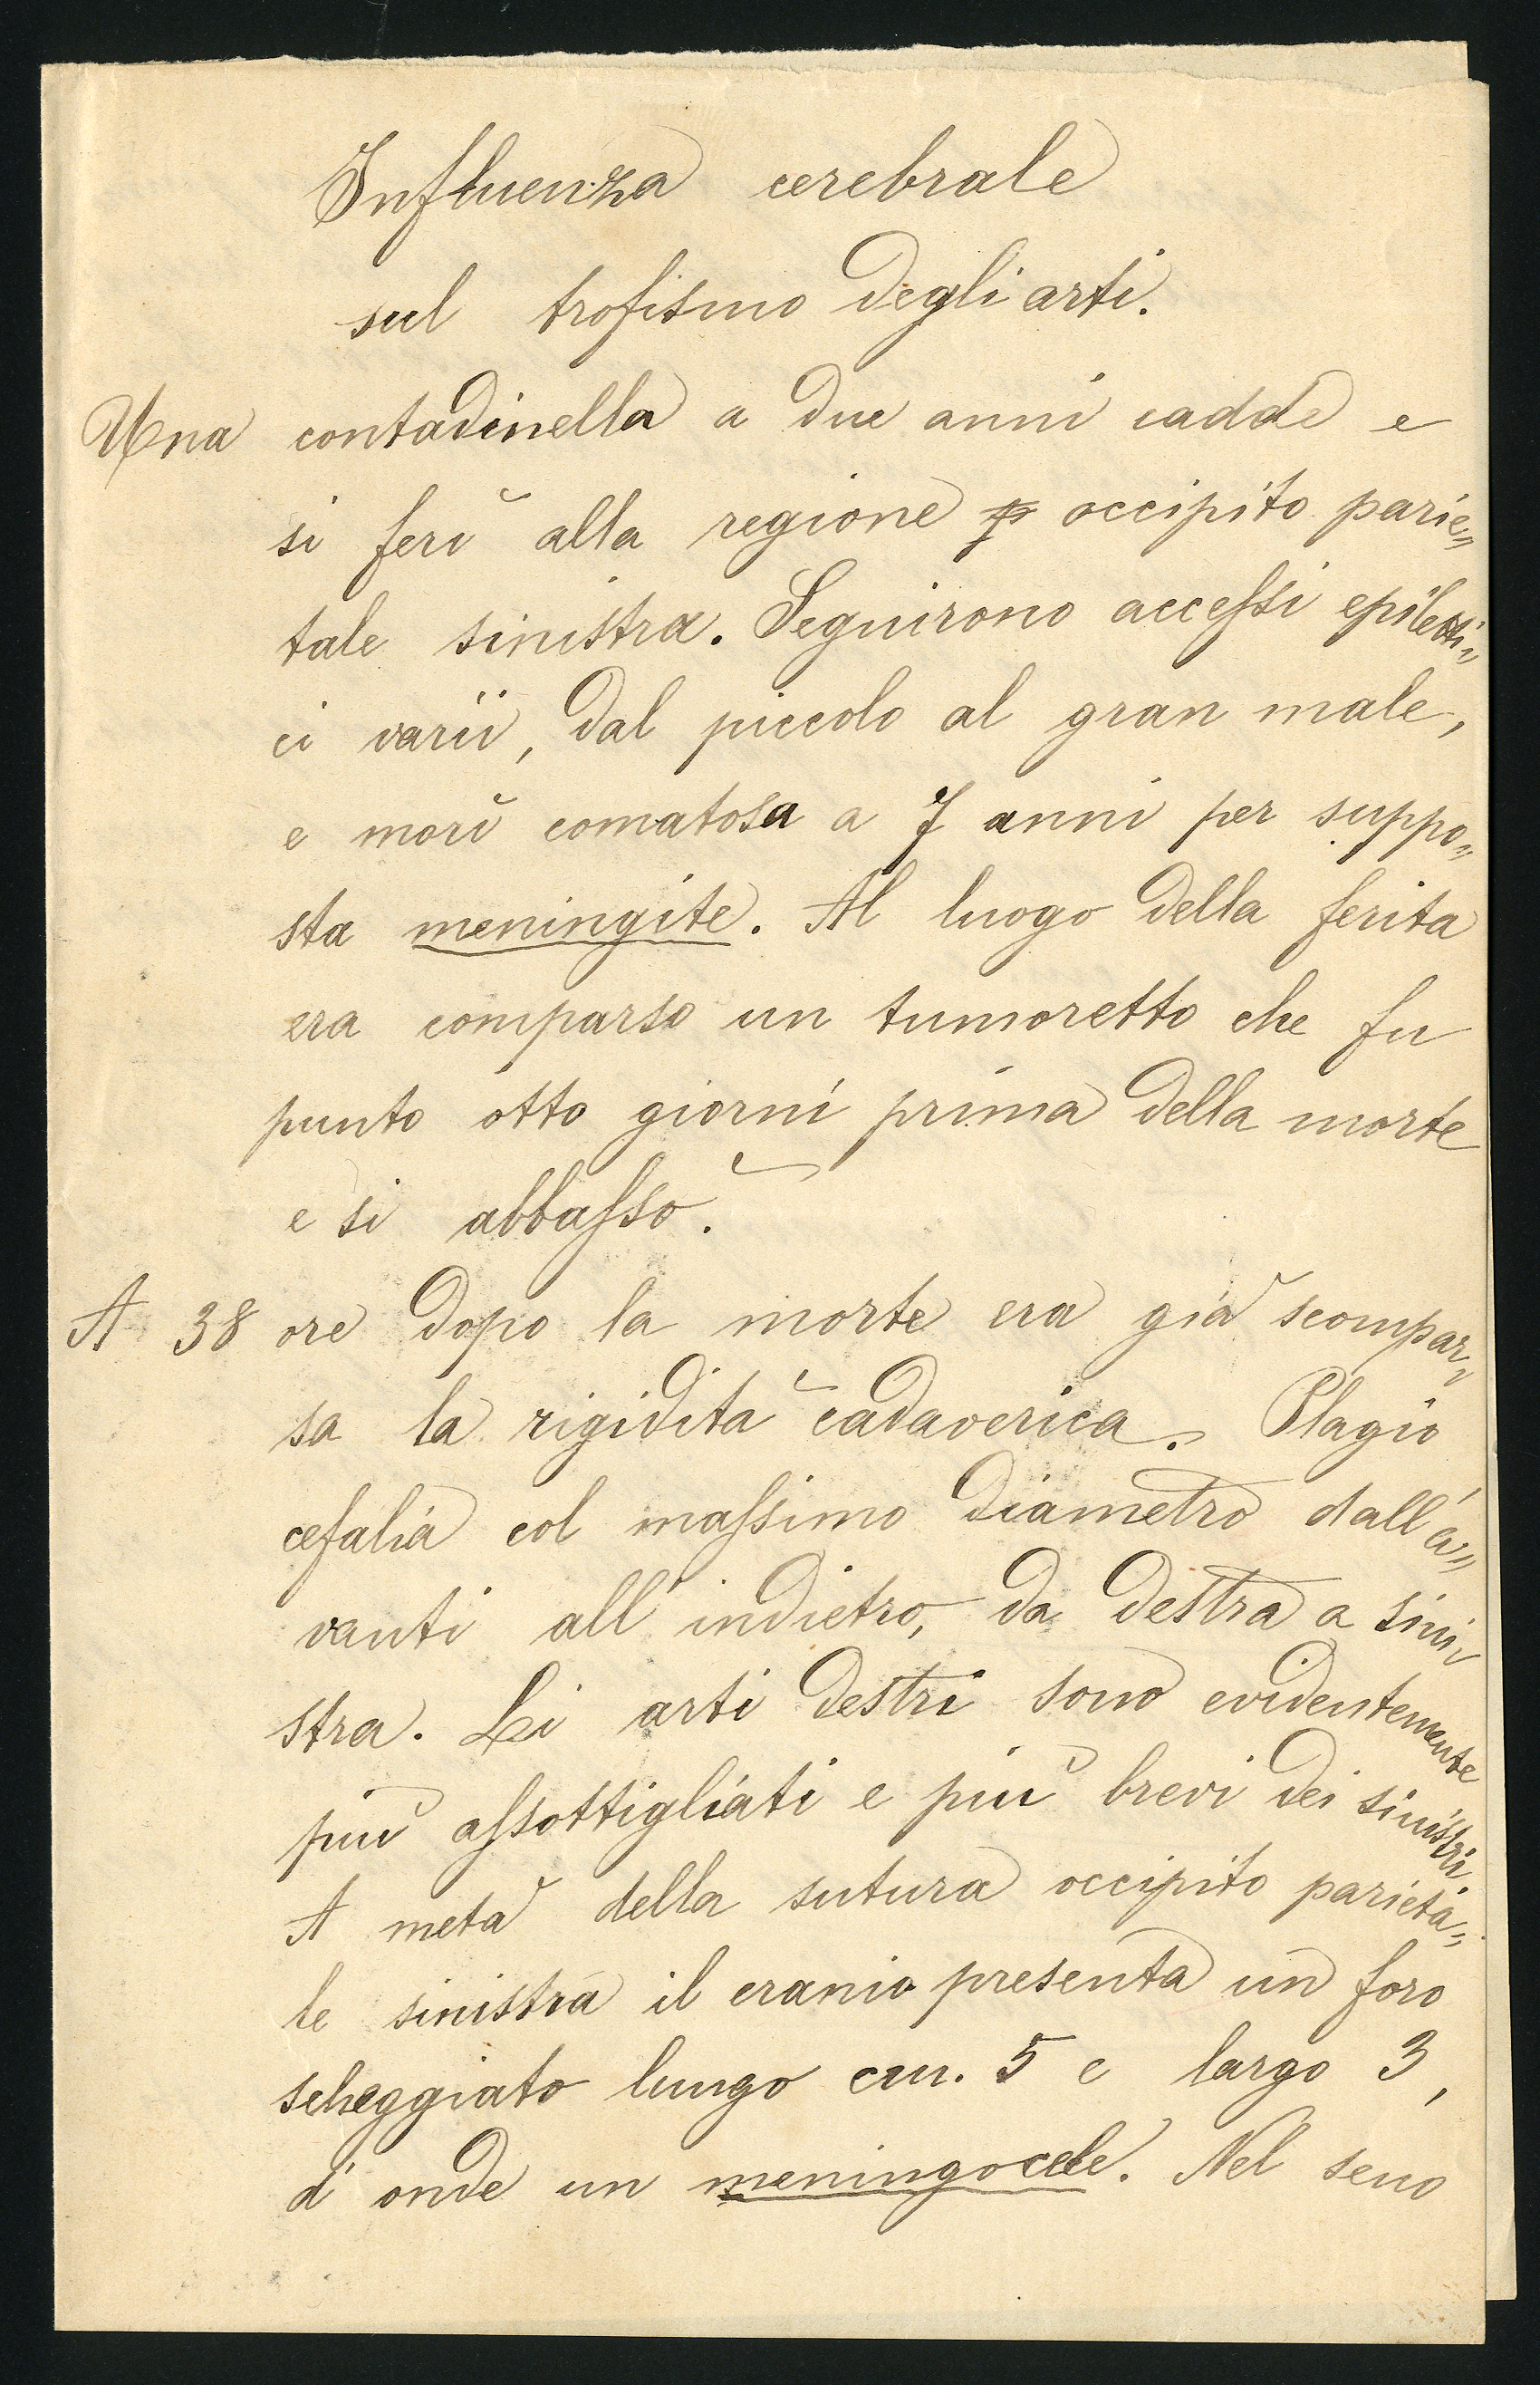 Influenza cerebrale
sul trofismo degli arti.
Una contadinella a due anni cadde e
si ferì alla regione p occipito parie„
tale sinistra. Seguirono accessi epiletti„
ci varii, dal piccolo al gran male,
e morì comatosa a 7 anni per suppo„
sta meningite. Al luogo della ferita
era comparso un tumoretto che fu
punto otto giorni prima della morte
e si abbassò.
A 38 ore dopo la morte era già scompar„
sa la rigidità cadaverica. Plagio
cefalia col massimo diametro dall'a„
vanti all'indietro, da destra a sini„
stra. Li arti destri sono evidentemente
più assottigliati e più brevi dei sinistri.
A metà della sutura occipito parieta„
le sinistra il cranio presenta un foro
scheggiato lungo cm. 5 e largo 3,
d'onde un meningocele. Nel seno